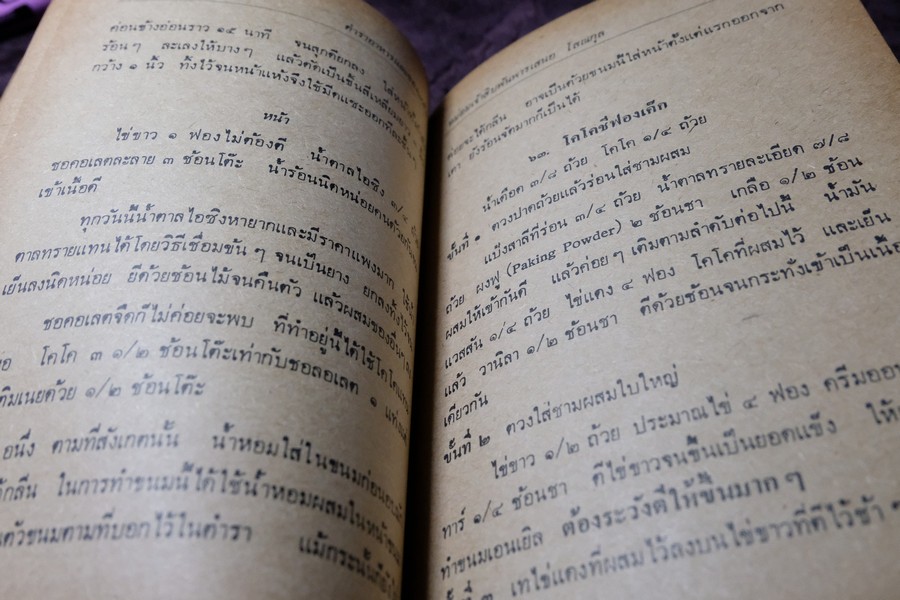 ค่อนข้างอ่อนราว ๑๕ นาที จนสุกดียกลง
ร้อนๆ ละเลงให้บางๆ แล้วตัดเป็นชิ้นสี่เหลี่ยม
กว้าง ๑ นิ้ว ทิ้งไว้จนหน้าแห้งจึงใช้มีดแซะออกที
หน้า
ไข่ขาว ๑ ฟองไม่ต้องตี น้ำตาลไอซิง ๓/๔
ชอคอเลตละลาย ๓ ช้อนโต๊ะ น้ำร้อนนิดหน่อยคน
เข้าเนื้อดี
ทุกวันนี้น้ำตาลไอซิงหายากและมีราคาแพงมาก
ตาลทรายแทนได้โดยวิธีเชื่อมข้นๆ จนเป็นยาง ยกลงทิ้งไว้
เย็นลงนิดหน่อย ยีด้วยช้อนไม้จนคืนตัว แล้วผสมของอื่น
ชอคอเลตจืดก็ไม่ค่อยจะพบ ที่ทำอยู่นี้ได้ใช้โคโค
โคโค ๓ ๑/๒ ช้อนโต๊ะเท่ากับชอลอเลต ๑
เติมเนยด้วย ๑/๒ ช้อนโต๊ะ
อนึ่ง ตามที่สังเกตนั้น น้ำหอมใส่ในขนมก่อน
กลิ่น ในการทำขนมนี้ได้ใช้น้ำหอมผสมในหน้า
ตัวขนมตามที่บอกไว้ในตำรา แม้กระนั้นก็
โสณกุล
อาจเป็นด้วยขนมนี้ใส่หน้าตั้งแต่แรกออกจาก
เตา ยังร้อนจัดมากก็เป็นได้
๖๓. โคโคชีฟองเค้ก
น้ำเดือด ๓/๘ ถ้วย โคโค ๑/๔ ถ้วย
ขั้นที่ ๑ ตวงปาดถ้วยแล้วร่อนใส่ชามผสม
แป้งสาลีที่ร่อน ๓/๔ ถ้วย น้ำตาลทรายละเอียด ๗/๘
ถ้วย ผงฟู (Paking Powder) ๒ ช้อนชา เกลือ ๑/๒ ช้อน
ผสมให้เข้ากันดี แล้วค่อยๆ เติมตามลำดับต่อไปนี้ น้ำมัน
แวสสัน ๑/๔ ถ้วย ไข่แดง ๔ ฟอง โคโคที่ผสมไว้ และเย็น
แล้ว วานิลา ๑/๒ ช้อนชา ตีด้วยช้อนจนกระทั่งเข้าเป็นเนื้อ
เดียวกัน
ขั้นที่ ๒ ตวงใส่ชามผสมใบใหญ่
ไข่ขาว ๑/๒ ถ้วย ประมาณไข่ ๔ ฟอง ครีมออ
ทาร์ ๑/๔ ช้อนชา ตีไข่ขาวจนขึ้นเป็นยอดแข็ง
ทำขนมเอนเยิล ต้องระวังตีให้ขึ้นมากๆ
เทไข่แดงที่ผสมไว้ลงบนไข่ขาวที่ตีไว้ช้า